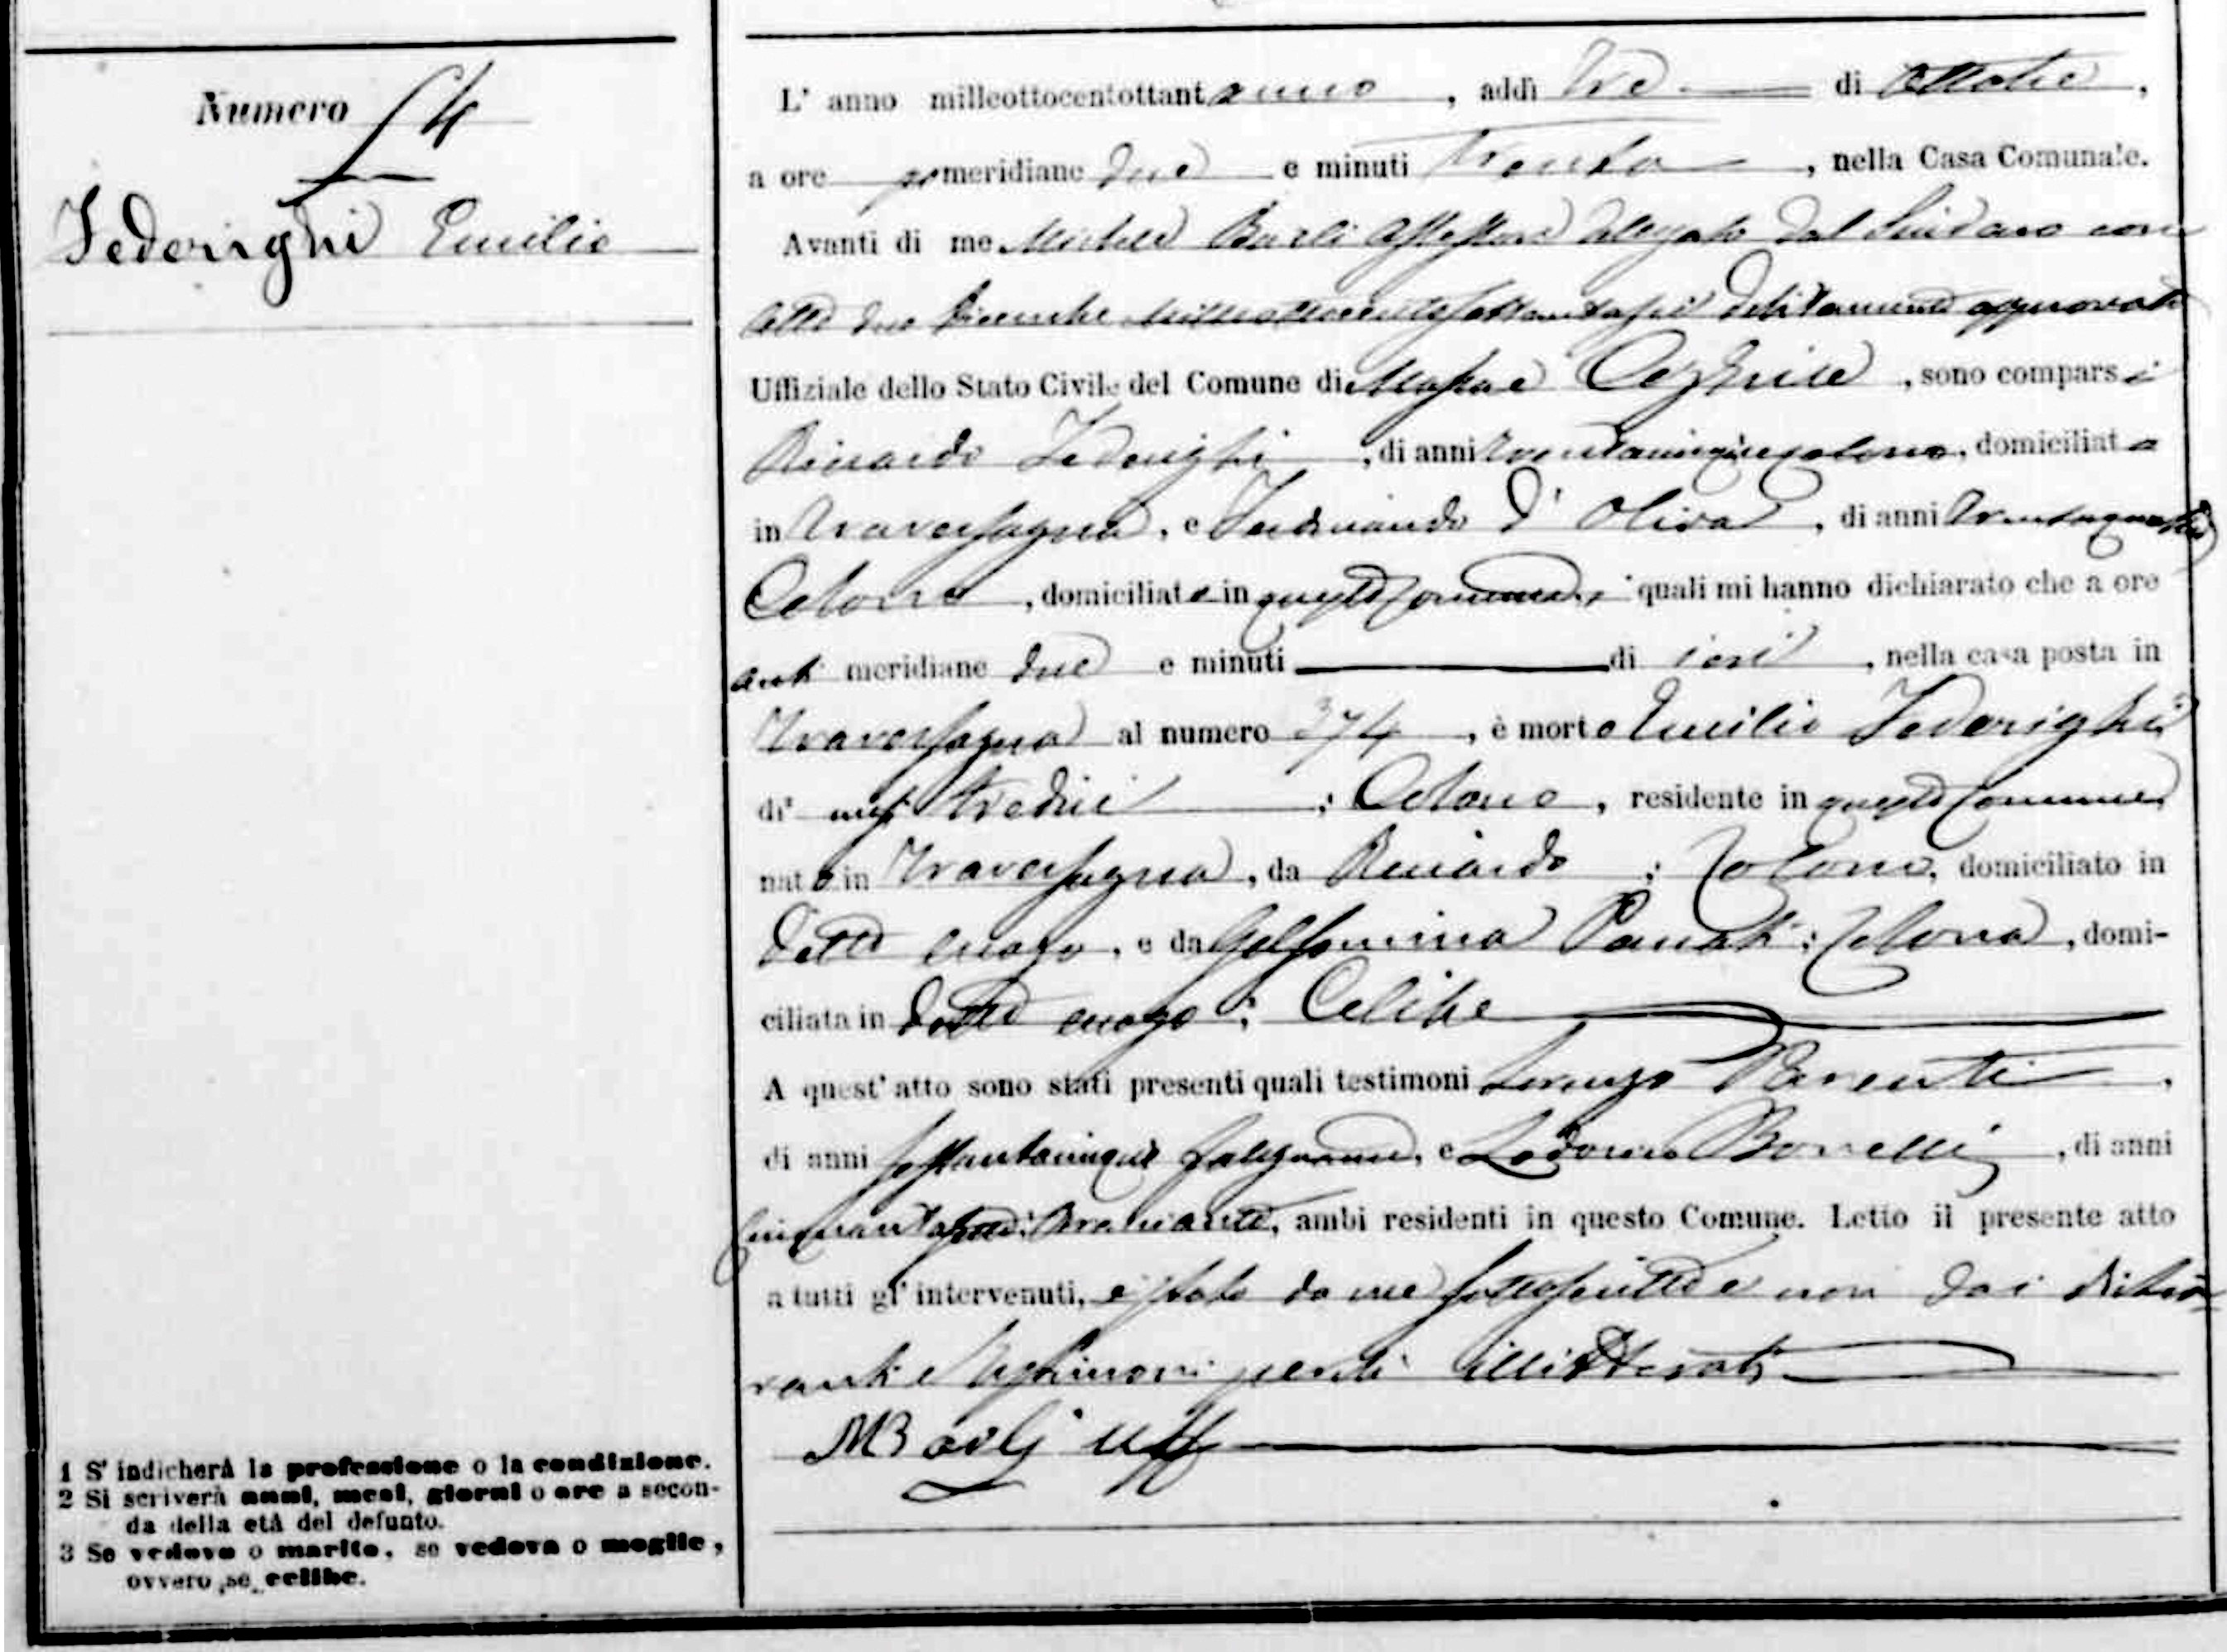 Numero 54
Federighi Emilio
1 S' indicherà la professione o la condizione.
2 Si scriverà anni, mesi, giorni o ore a secon-
da della età del defunto.
3 Se vedovo o marito, se vedova o moglie,
ovvero se celibe.
L' anno milleottocentottantanno, addì tre di Ottobre,
a ore pomeridiane due e minuti trenta, nella Casa Comunale.
Avanti di me Michele Barli Assessore delegato dal Sindaco con
atto due Dicembre milleottocentosettantasei debitamente approvato
Uffiziale dello Stato Civile del Comune di Massa e Cozzile, sono comparsi
Federighi, di anni trentacinque colono, domiciliato
in Traversagna, e Ferdinando D' Oliva, di anni trentaquattro
Colono, domiciliato in questo Comune, i quali mi hanno dichiarato che a ore
anti meridiane due e minuti di ieri, nella casa posta in
Traversagna al numero 374, è morto Emilio Federighi
di mesi tredici; Colono, residente in questo Comune,
nato in Traversagna, da ; Colono, domiciliato in
detto luogo, e da Gelsomina ; Colona, domi-
ciliata in detto luogo; Celibe
A quest' atto sono stati presenti quali testimoni Lorenzo Parenti,
di anni sessantacinque falegname, e Lodovico Bonelli, di anni
ambi residenti in questo Comune. Letto il presente atto
a tutti gl' intervenuti, è stato da me sottoscritto e non dai dichia-
ranti e testimoni perché illitterati
M Barli Uff